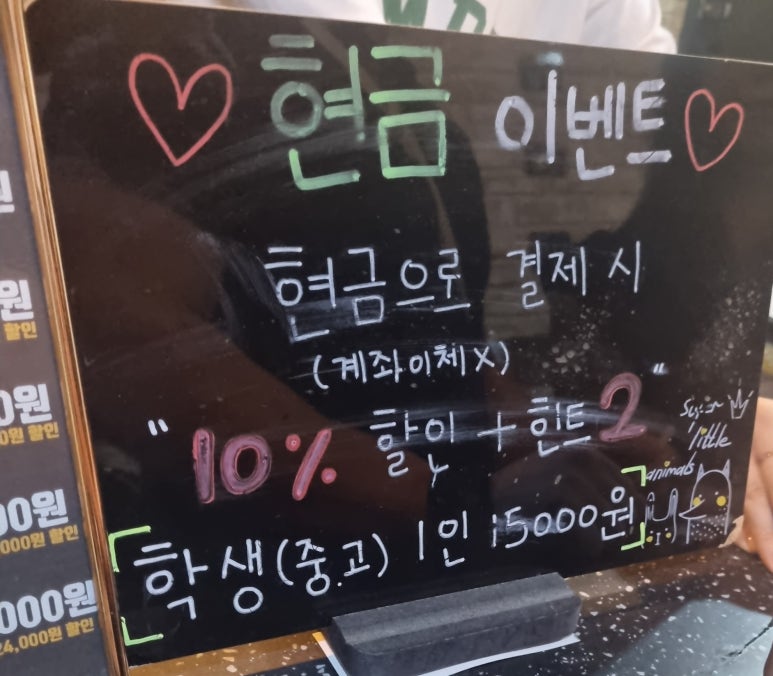 현금 이벤트
현금으로 결제 시
(계좌이체X)
"10% 할인 + 힌트2"
학생(중.고) 1인 15000원
little
animals
원
원
할인
0원
0원 할인
00원
000원 할인
000원
24,000원 할인